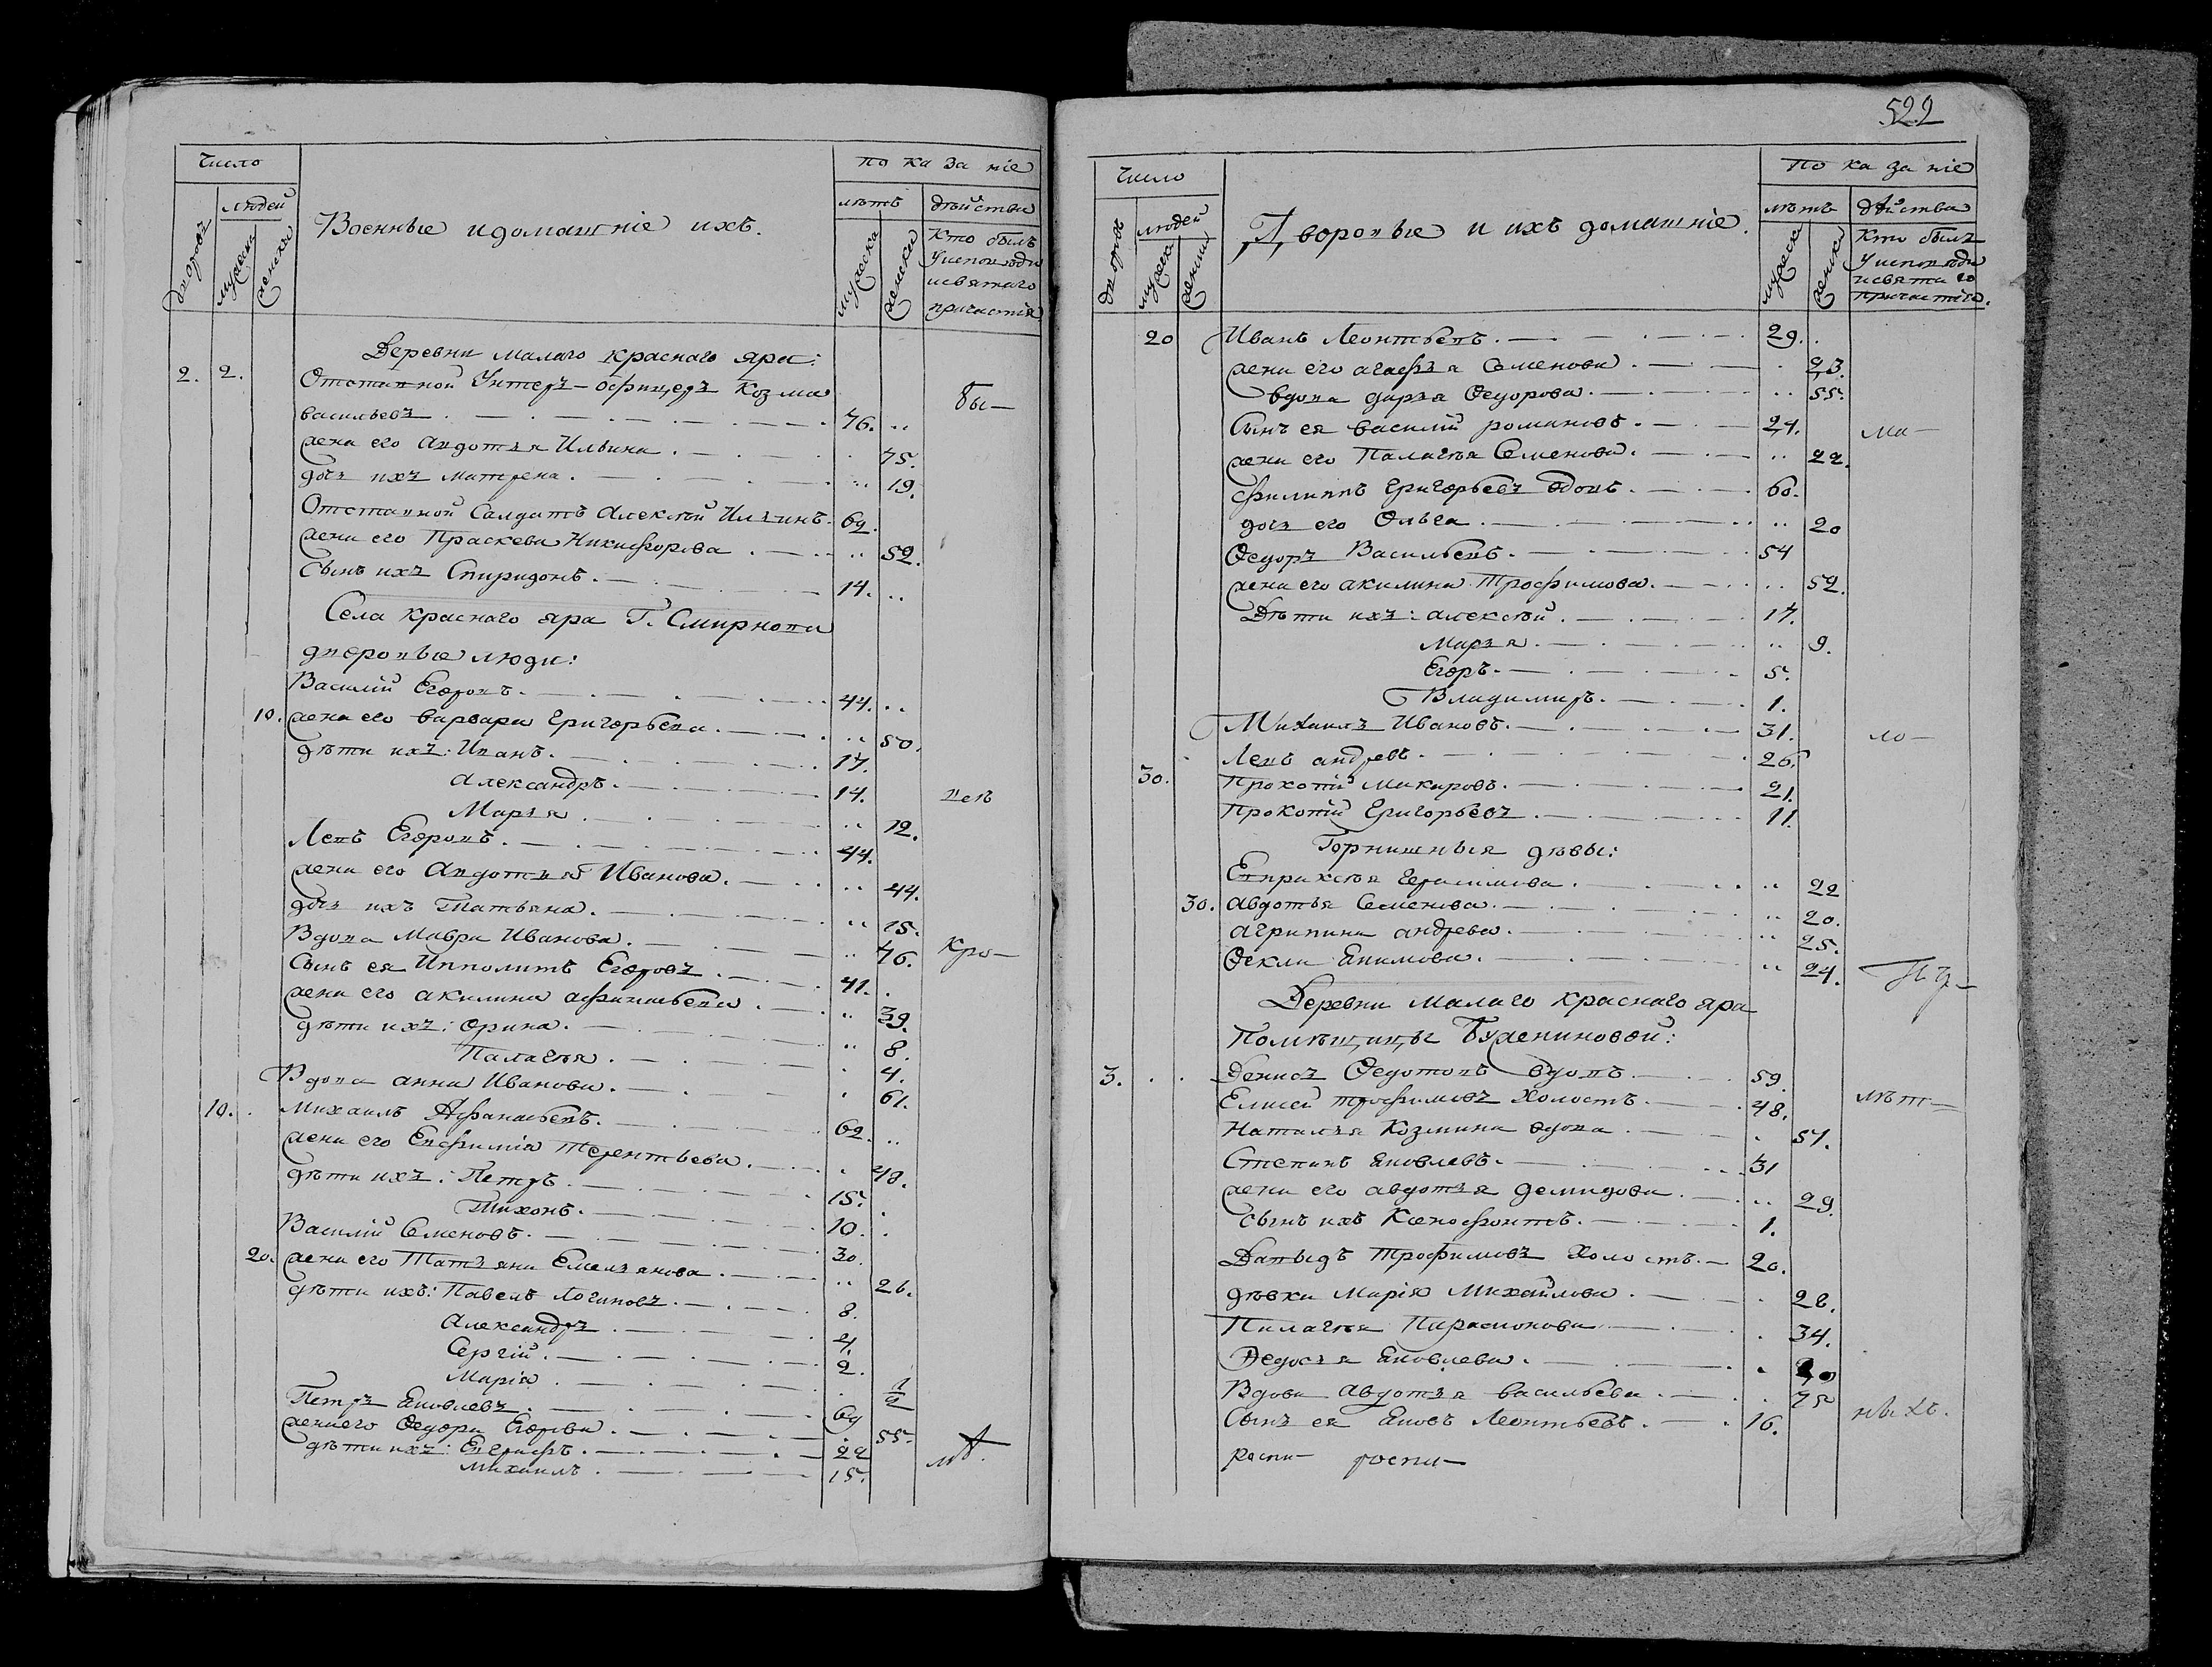 число
по ка за ніе
людей
лѣтъ
дѣйства
дворовъ
мужеска
женска
Военные и домашніе ихъ.
мужеска
женска
Кто былъ
у исповѣди
и святаго
причастія
Деревни Малаго краснаго яра:
2. 2. Отставной Унтеръ-офицеръ Козма
бы—
васильевъ 76. ..
жена его Авдотья Ильина 75.
дочь ихъ матрена 19.
Отставной Салдатъ Алексѣй Ильинъ 69.
жена его Праскева Никифорова 52.
Сынъ ихъ Спиридонъ 14. ..
Села краснаго яра Г. Смирнова
дворовые люди:
Василій Егоровъ 44. ..
10. жена его варвара григорьева 50.
дѣти ихъ: Иванъ 17.
Александръ 14. цев
Марья 12.
Левъ Егоровъ 44.
жена его Авдотья Иванова 44.
дочь ихъ Татьяна 15.
Вдова Мавра Иванова 76. кро—
Сынъ ея Ипполитъ Егоровъ 41.
жена его акилина афанасьева 39.
дѣти ихъ: орина 8.
Палагѣя 4.
Вдова анна Иванова 61.
10. Михаилъ Афанасьевъ 62. ..
жена его Евфимія терентьева 48.
дѣти ихъ: Петръ 15.
Тихонъ 10.
Василій Семеновъ 30.
20. жена его Татьяна Емельянова 26.
дѣти ихъ: Павелъ логиновъ 8.
Александръ 4.
Сергій 2.
Марія 1/2
Петръ Яковлевъ 69
жена его Ѳедора Егорова 55.
дѣти ихъ: Евграфъ 22
Михаилъ 15.
522
число
по ка за ніе
людей
лѣтъ
дѣйства
дворовъ
мужеска
женска
Дворовые и ихъ домашніе.
мужеска
женска
Кто былъ
у исповѣди
и святаго
причастія.
20 Иванъ Леонтьевъ 29.
жена его агафья Семенова 23.
вдова дарья Ѳедорова 55.
Сынъ ея василій романовъ 24. ма—
жена его Палагѣя Семенова 22.
филиппъ григорьевъ вдовъ 60.
дочь его Ольга 20
Ѳедоръ Васильевъ 54
жена его акилина Трофимова 52.
Дѣти ихъ: алексѣй 17.
Марья 9.
Егоръ 5.
Владимиръ 1.
Михаилъ Ивановъ 31. ло—
Левъ андревъ 26.
30. Прокопій Макаровъ 21.
Прокопій Григорьевъ 11.
Горнишныя дѣвы:
Евпраксѣя Герасимова 22
30. авдотья Семенова 20.
агрипина андрева 25.
Ѳекла Якимова 24.
Деревни Малаго краснаго яра
Помѣщицы Бужениновой:
3. Денисъ Ѳедотовъ вдовъ 59.
Елисей трофимовъ холостъ 48. лѣт—
Наталья Козмина вдова 57.
Степанъ Яковлевъ 31
жена его авдотья демидова 29.
сынъ ихъ Ксенофонтъ 1.
Давыдъ Трофимовъ холостъ 20.
дѣвки Марія Михайлова 28.
Палагѣя Парамонова 34.
Ѳедосья Яковлева
Вдова Авдотья васильева 75
Сынъ ея Яковъ Леонтьевъ 16. ныхъ.
роспи— роспи—